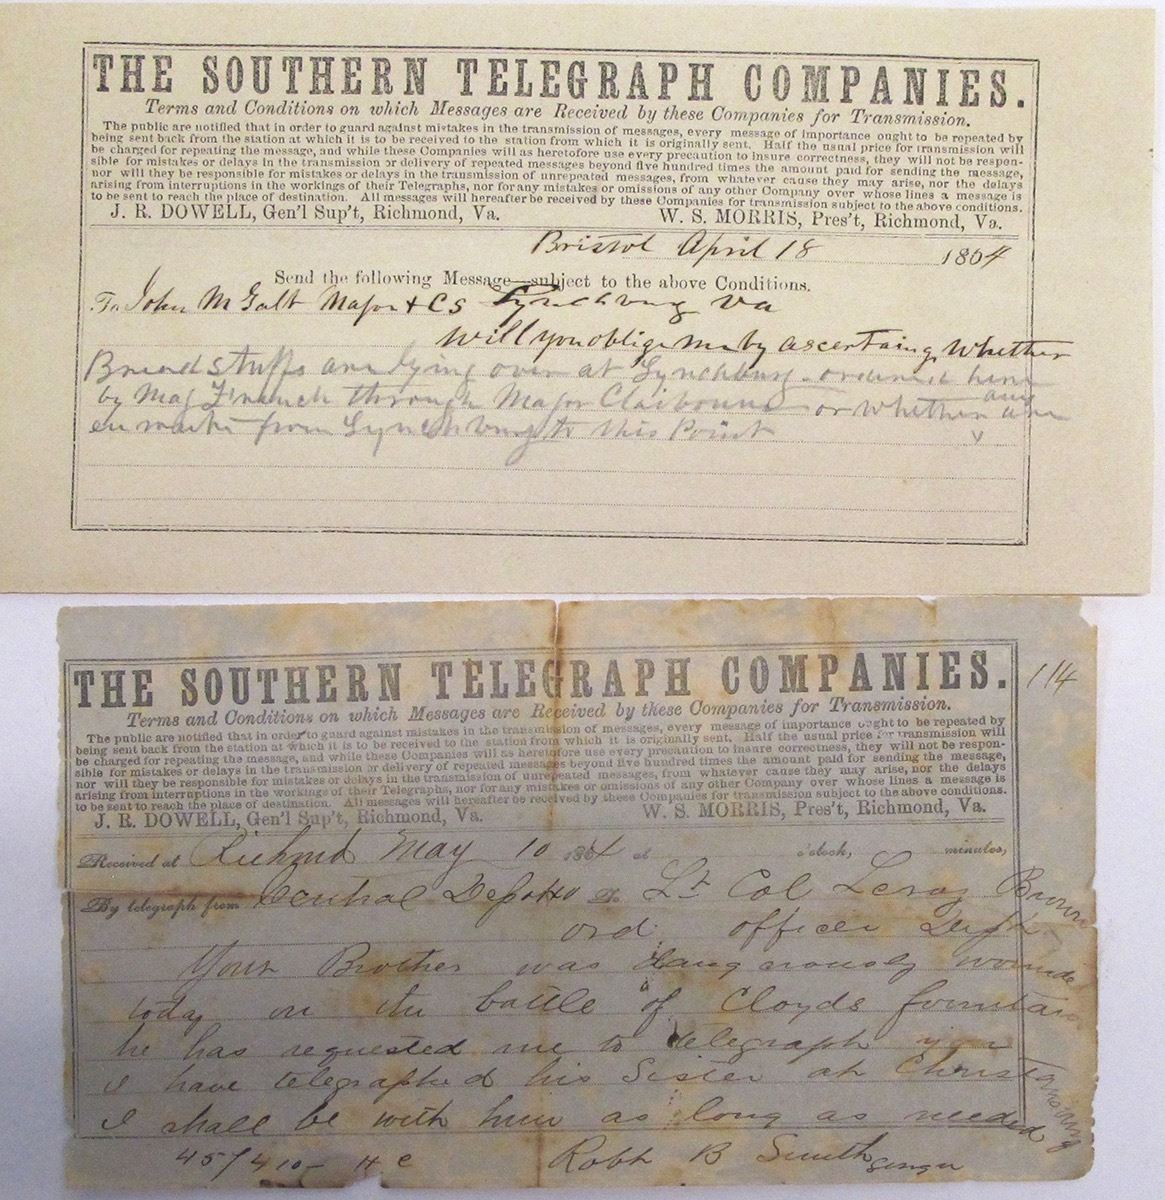 THE SOUTHERN TELEGRAPH COMPANIES.
Terms and Conditions on which Messages are Received by these Companies for Transmission.
The public are notified that in order to guard against mistakes in the transmission of messages, every message of importance ought to be repeated by
being sent back from the station at which it is to be received to the station from which it is originally sent. Half the usual price for transmission will
be charged for repeating the message, and while these Companies will as heretofore use every precaution to insure correctness, they will not be respon-
sible for mistakes or delays in the transmission or delivery of repeated messages beyond five hundred times the amount paid for sending the message,
nor will they be responsible for mistakes or delays in the transmission of unrepeated messages, from whatever cause they may arise, nor the delays
arising from interruptions in the workings of their Telegraphs, nor for any mistakes or omissions of any other Company over whose lines a message is
to be sent to reach the place of destination. All messages will hereafter be received by these Companies for transmission subject to the above conditions.
J. R. DOWELL, Gen'l Sup't, Richmond, Va. W. S. MORRIS, Pres't, Richmond, Va.
Bristol April 18 1864
Send the following Message subject to the above Conditions.
To John M Galt Major & CS Lynchburg Va
Will you oblige me by ascertaing, Whether
Bread stuffs are lying over at Lynchburg ordered here
by Maj French through Major Claibourne or whether any are
en route from Lynchburg to this Point
THE SOUTHERN TELEGRAPH COMPANIES. 114
Terms and Conditions on which Messages are Received by these Companies for Transmission.
The public are notified that in order to guard against mistakes in the transmission of messages, every message of importance ought to be repeated by
being sent back from the station at which it is to be received to the station from which it is originally sent. Half the usual price for transmission will
be charged for repeating the message, and while these Companies will as heretofore use every precaution to insure correctness, they will not be respon-
sible for mistakes or delays in the transmission or delivery of repeated messages beyond five hundred times the amount paid for sending the message,
nor will they be responsible for mistakes or delays in the transmission of unrepeated messages, from whatever cause they may arise, nor the delays
arising from interruptions in the workings of their Telegraphs, nor for any mistakes or omissions of any other Company over whose lines a message is
to be sent to reach the place of destination. All messages will hereafter be received by these Companies for transmission subject to the above conditions.
J. R. DOWELL, Gen'l Sup't, Richmond, Va. W. S. MORRIS, Pres't, Richmond, Va.
Received at Richmd May 10 1864 at o'clock, minutes,
By telegraph from Central Depot To Lt Col Leroy Brown
ord officer Dept
Your Brother was dangerously wounde
today in the battle of Cloyds
he has requested me to telegraph you
I have telegraphed his Sister at Christiansburg
I shall be with him as long as needed
45/410- HC Robt B Smith